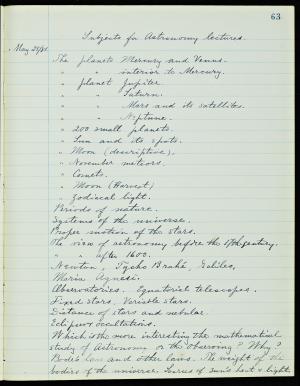 63
Subjects for Astronomy lectures.
May 29/85.
The planets Mercury and Venus.
" " interior to Mercury.
" planet Jupiter.
" " Saturn.
" " Mars and its satellites.
" " Neptune.
" 200 small planets.
" Sun and its spots.
" Moon (descriptive).
" November meteors.
" Comets.
" Moon (Harvest)
" Zodiacal light.
Periods of nature.
Systems of the universe.
Proper motion of the stars.
The view of astronomy before the 17th century.
" " " after 1600.
Newton, Tycho Brahé, Galileo,
Maria Agnesi.
Observatories. Equatorial telescopes.
Fixed stars. Variable stars.
Distance of stars and nebulae.
Eclipses occultations.
Which is the more interesting the mathematical
study of Astronomy or the Observing? Why?
Bode's law and other laws. The weight of the
bodies of the universe. Sources of Sun's heat & light.